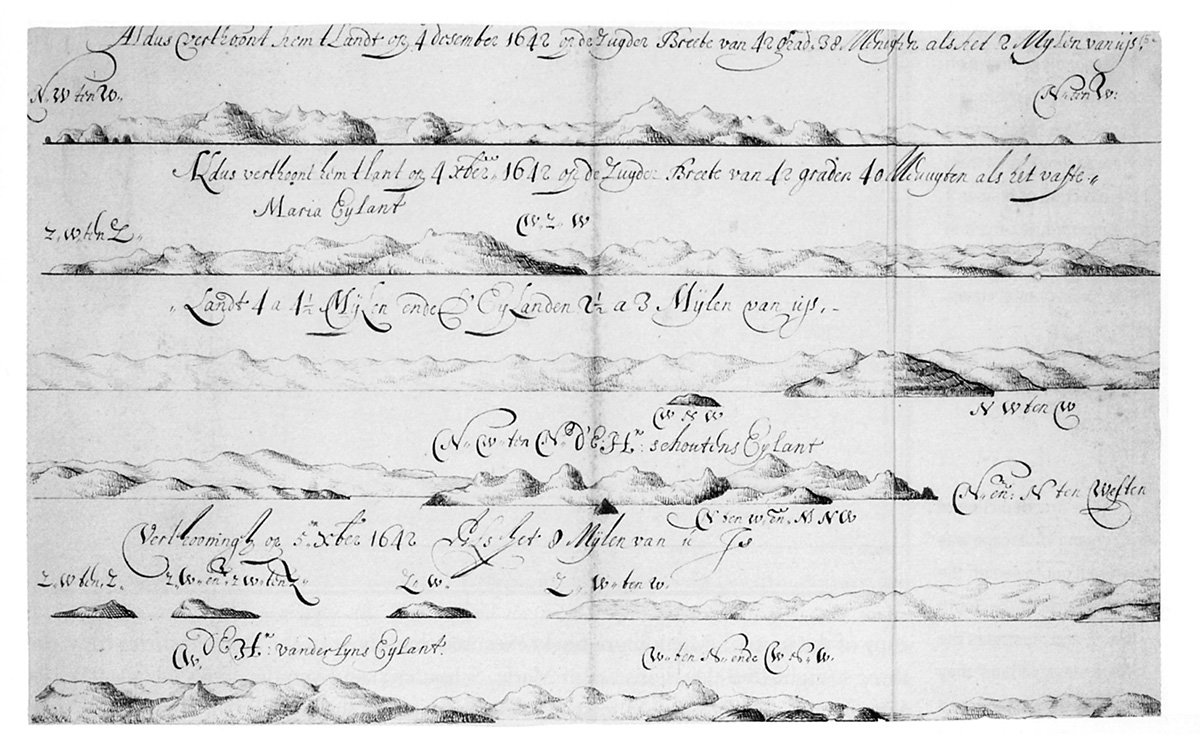 Aldus verthoont hem t Landt op 4 desember 1642 op de Zuyder Breete van 42 grad. 38 Menuten als het 2 Mylen van u is,
N. W ten W.
N. ten W.
Aldus verthoont hem t lant op 4 xber. 1642 op de Zuyder Breete van 42 graden 40 Menuyten als het vaste
Maria Eylant
Z. W. ten Z.
W. Z. W
Landt 4 a 4½ Mylen ende d' Eylanden 2½ a 3 Mylen van u is.
W N W
N W ten W
N. W. ten N. d' E. Hr: schoutens Eylant
N. en: N ten Westen
N ten w. en. N N W
Verthooningh op 5 Xber 1642 Als het 8 Mylen van u Is
Z. W. ten. Z.
Z. W. en. Z. W. ten Z.
Z. W.
Z. W. ten W.
W. d' E. Hr: vanderlyns Eylant
W. ten N. ende W. N. W.